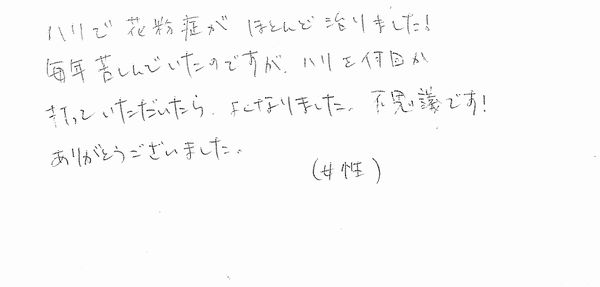 ハリで花粉症がほとんど治りました!
毎年苦しんでいたのですが、ハリを何回か
打っていただいたら、よくなりました。不思議です!
ありがとうございました。
(女性)